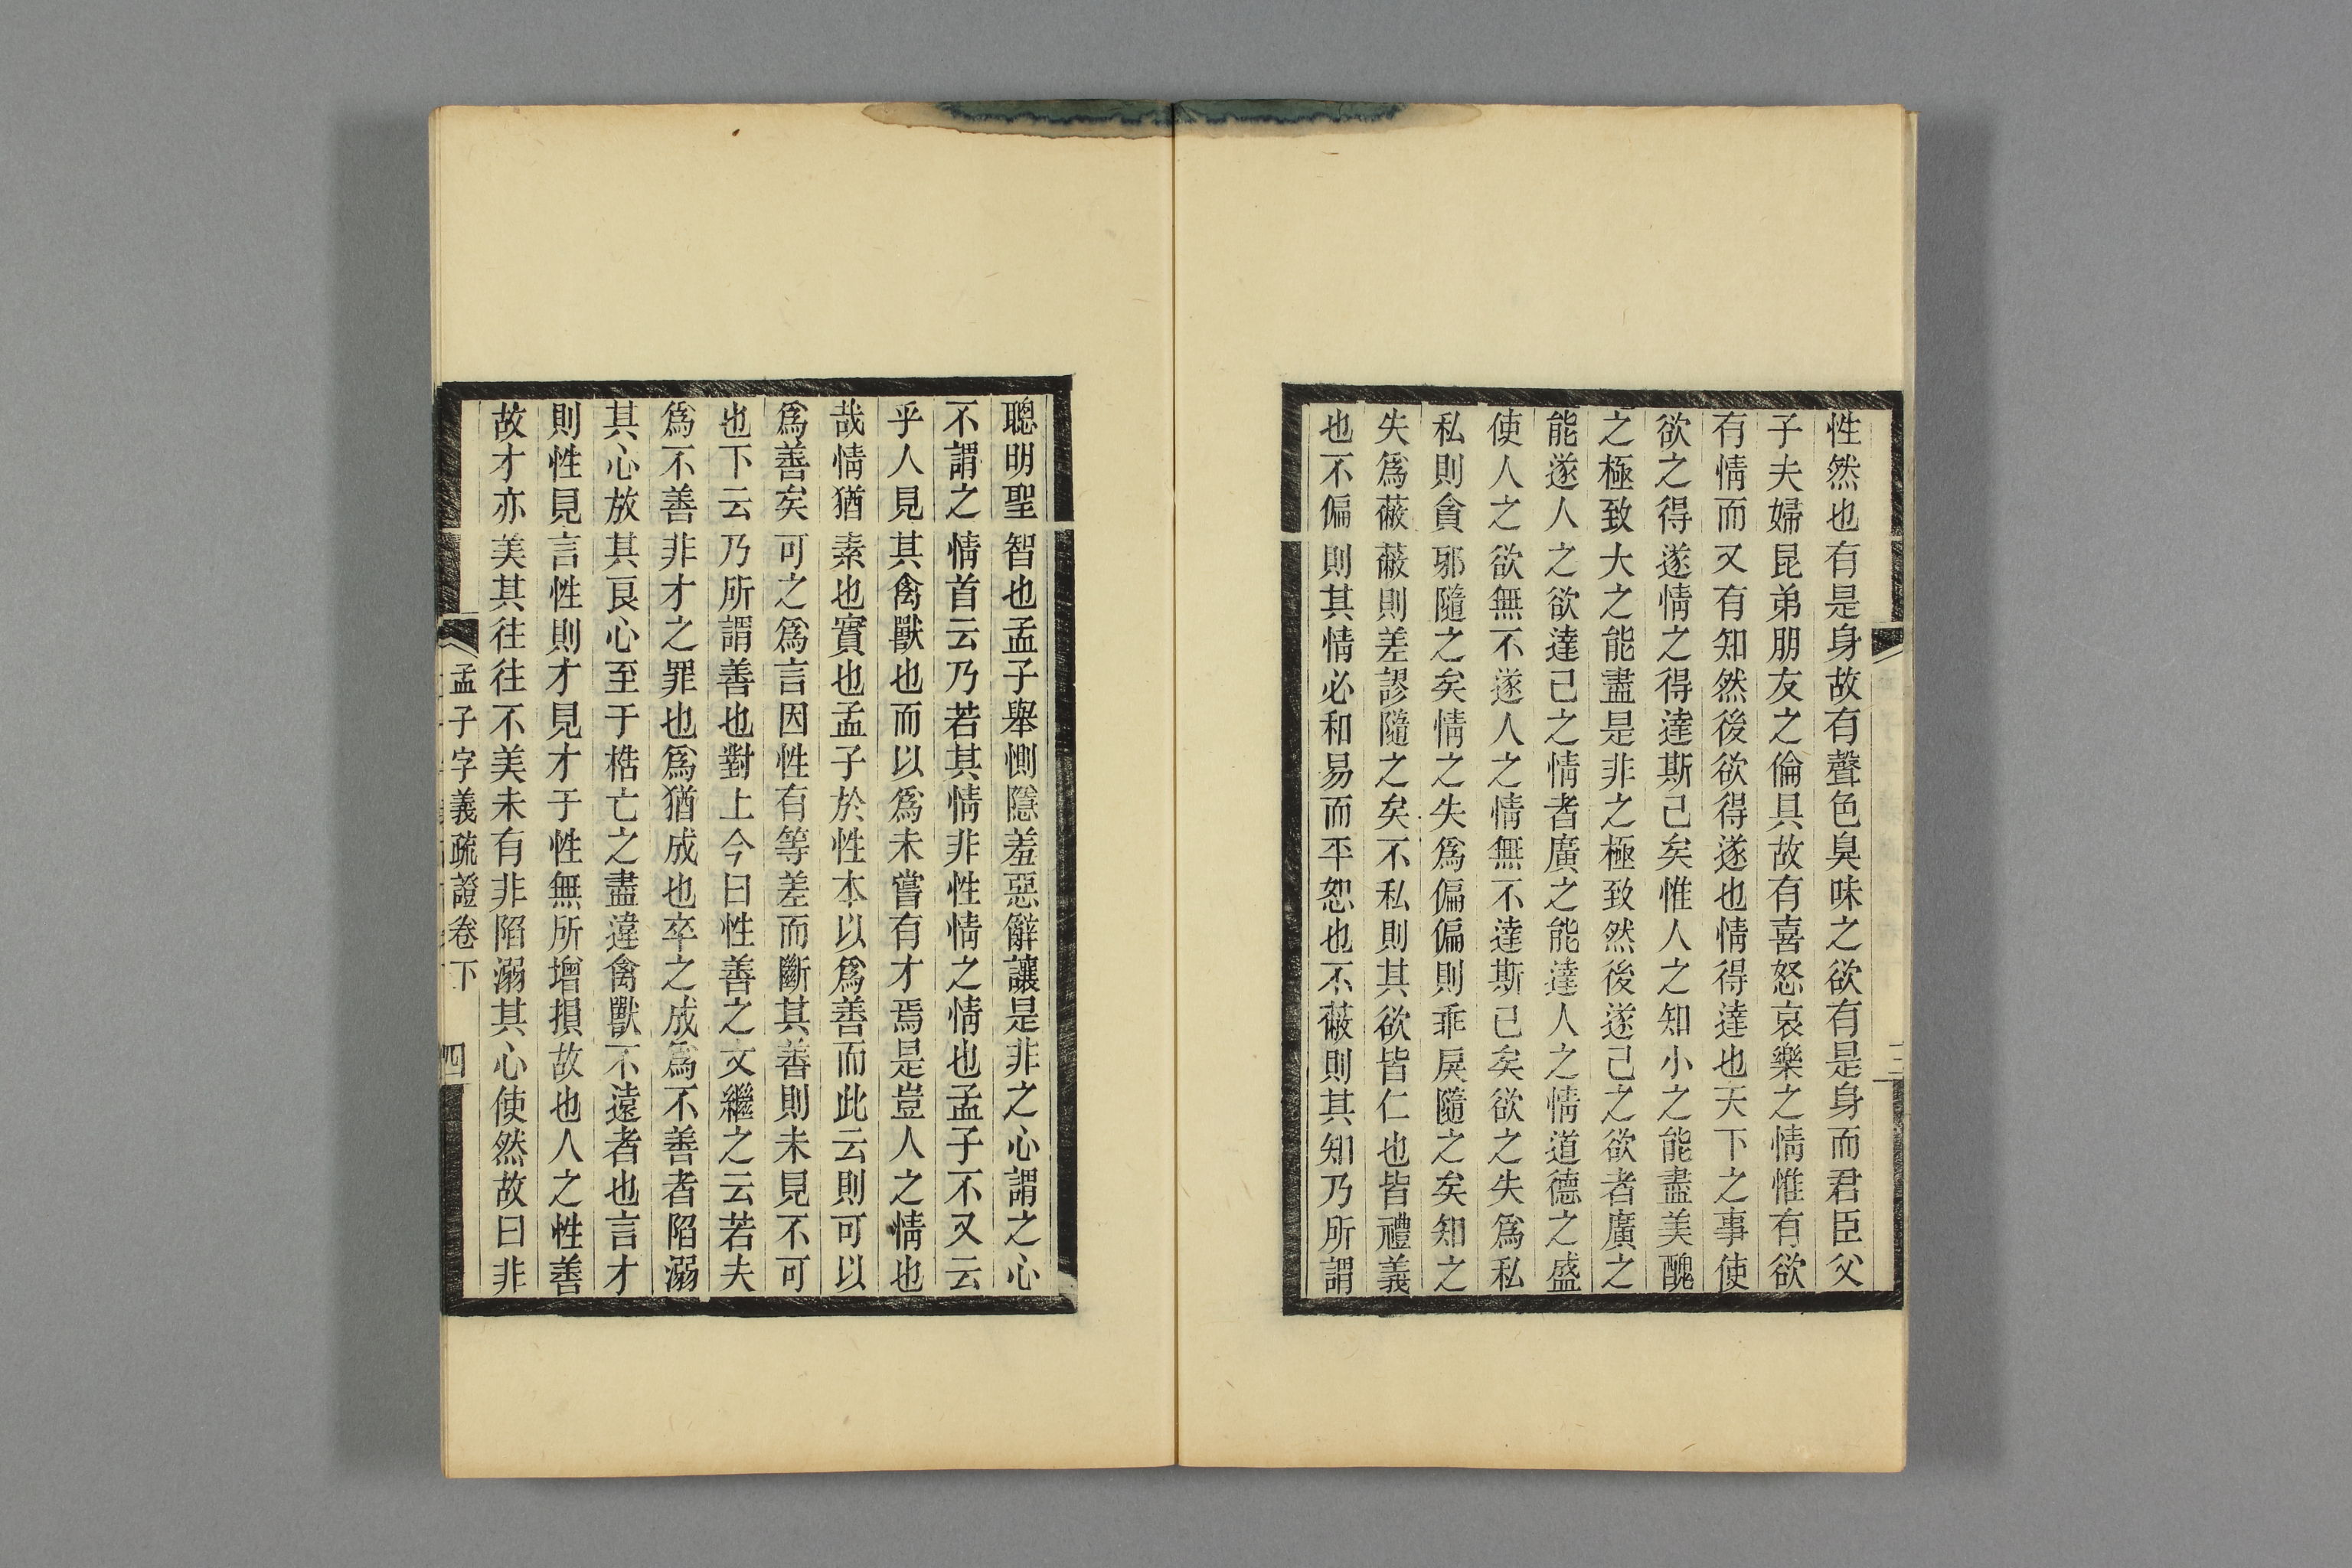 性然也有是身故有聲色臭味之欲有是身而君臣父
子夫婦昆弟朋友之倫具故有喜怒哀樂之情惟有欲
有情而又有知然後欲得遂也情得達也天下之事使
欲之得遂情之得達斯己矣惟人之知小之能盡美醜
之極致大之能盡是非之極致然後遂己之欲者廣之
能遂人之欲達己之情者廣之能達人之情道德之盛
使人之欲無不遂人之情無不達斯己矣欲之失爲私
私則貪邪隨之矣情之失爲偏偏則乖戾隨之矣知之
失爲蔽蔽則差謬隨之矣不私則其欲皆仁也皆禮義
也不偏則其情必和易而平恕也不蔽則其知乃所謂
聰明聖智也孟子舉惻隱羞惡辭讓是非之心謂之心
不謂之情首云乃若其情非性情之情也孟子不又云
乎人見其禽獸也而以爲未嘗有才焉是豈人之情也
哉情猶素也實也孟子於性本以爲善而此云則可以
爲善矣可之爲言因性有等差而斷其善則未見不可
也下云乃所謂善也對上今曰性善之文繼之云若夫
爲不善非才之罪也爲猶成也卒之成爲不善者陷溺
其心放其良心至于梏亡之盡違禽獸不遠者也言才
則性見言性則才見才于性無所增損故也人之性善
故才亦美其往往不美未有非陷溺其心使然故曰非
孟子字義疏證卷下 四